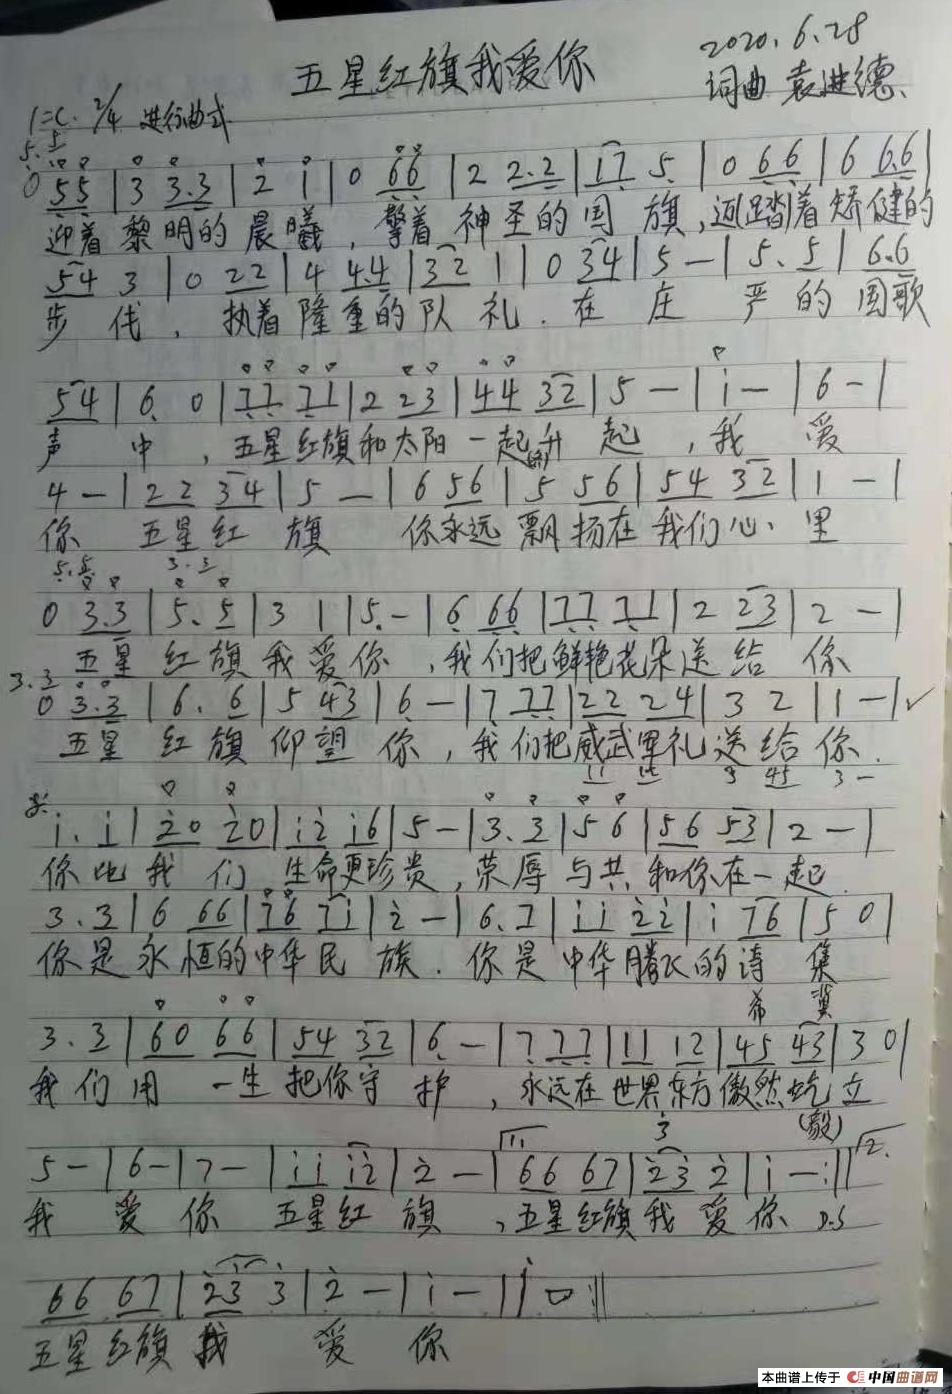 五星红旗我爱你
2020.6.28
词曲 袁进德
1=C 2/4 进行曲式
0 55 | 3 3.3 | 2 i | 0 66 | 2 2.2 | 17 5 | 0 66 | 6 6.6 |
迎着黎明的晨曦，擎着神圣的国旗，迈踏着矫健的
54 3 | 0 22 | 4 4.4 | 32 1 | 0 34 | 5 — | 5. 5 | 6.6
步伐，执着隆重的队礼．在庄严的国歌
54 | 6 0 | 77 71 | 2 23 | 44 32 | 5 — | i — | 6 — |
声中，五星红旗和太阳一起升起，我爱
4 — | 22 34 | 5 — | 6 56 | 5 56 | 54 32 | 1 — |
你 五星红旗 你永远飘扬在我们心里
5.5 3.3
0 3.3 | 5. 5 | 3 1 | 5. — | 6 66 | 77 71 | 2 23 | 2 — |
五星红旗我爱你，我们把鲜艳花朵送给你
3.3
0 3.3 | 6. 6 | 5 43 | 6 — | 7 77 | 22 24 | 3 2 | 1 — |
五星红旗仰望你，我们把威武军礼送给你．
11 3 45 3 —
i. i | 20 20 | i2 i6 | 5 — | 3. 3 | 5 6 | 56 53 | 2 — |
你比我们生命更珍贵，荣辱与共和你在一起．
3. 3 | 6 66 | 76 7i | 2 — | 6. 7 | ii 22 | i 76 | 5 0 |
你是永恒的中华民族．你是中华腾飞的诗集
希冀
3. 3 | 60 66 | 54 32 | 6 — | 7 77 | 11 12 | 45 43 | 3 0 |
我们用一生把你守护，永远在世界东方傲然屹立
(毅)
3
5 — | 6 — | 7 — | ii i2 | 2 — | 66 67 | 23 2 | i — :||
1. 2.
我爱你 五星红旗，五星红旗我爱你 D.S
66 67 | 23 3 | 2 — | i — | i 0 ||
五星红旗我爱你
本曲谱上传于 中国曲谱网